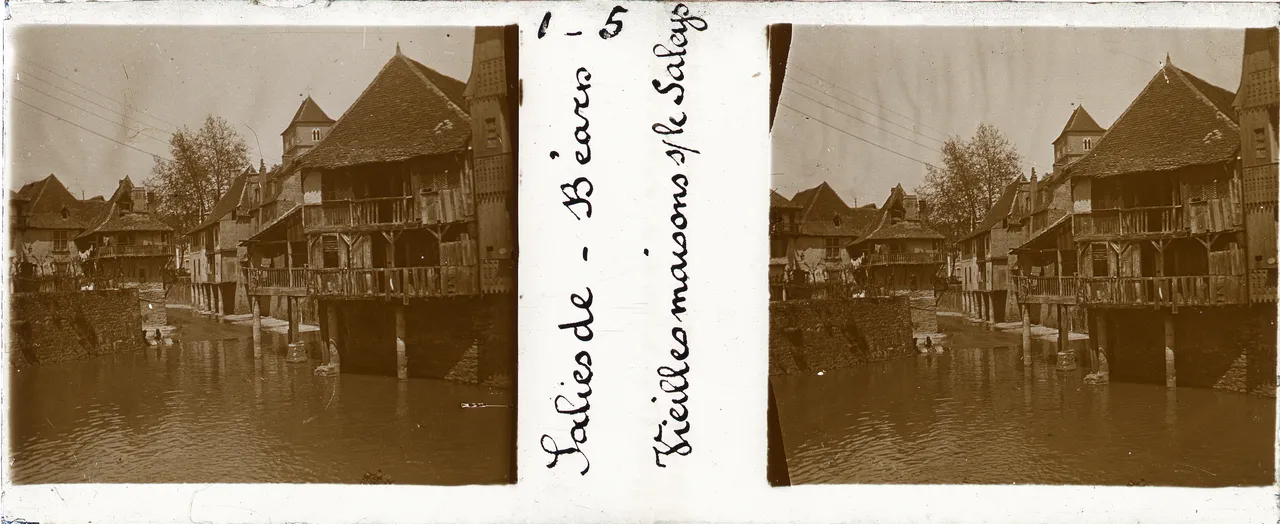 Salies de - Béarn - 5
Vieilles maisons s/le Saleys